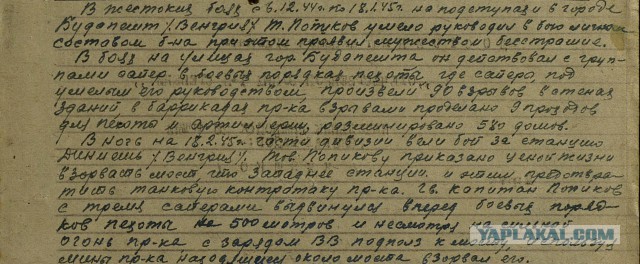 В жестоких боях с 6.12.44г. по 18.1.45г. на подступах и в городе
Будапешт /Венгрия/ т. Попиков умело руководил в бою личным
составом б-на при этом проявил мужество и бесстрашие.
В боях на улицах гор. Будапешта он действовал с груп-
пами сапер. в боевых порядках пехоты где сапера, под
умелым его руководством произвели 90 взрывов в стенах
зданий в баррикадах пр-ка взрывами проделано 9 проходов
для пехоты и артиллерии, разминировано 580 домов.
В ночь на 18.2.45г. части дивизии вели бой за станцию
/Венгрия/. Тов. Попикову приказано ценой жизни
взорвать мост, что западнее станции и этим предотвра-
тить танковую контратаку пр-ка. Гв. капитан Попиков
с тремя саперами выдвинулся вперед боевых поряд-
ков пехоты на 500 метров и несмотря на сильный
огонь пр-ка с зарядом ВВ подполз к мосту,
мины пр-ка находящиеся около моста взорвал его.
YAPLAKAL.COM